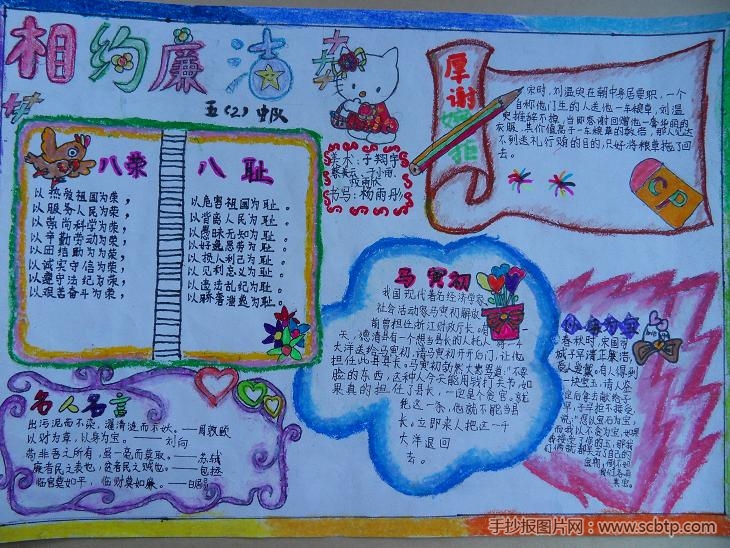 相约廉洁
五(2)中队
八荣
以热爱祖国为荣，
以服务人民为荣，
以崇尚科学为荣，
以辛勤劳动为荣，
以团结互助为荣，
以诚实守信为荣，
以遵守法纪为荣，
以艰苦奋斗为荣，
八耻
以危害祖国为耻。
以背离人民为耻。
以愚昧无知为耻。
以好逸恶劳为耻。
以损人利己为耻。
以见利忘义为耻。
以违法乱纪为耻。
以骄奢淫逸为耻。
书写：杨雨彤
厚谢婉拒
宋时，刘温叟在朝中身居要职，一个
自称他们生的人送他一车粮草，刘温
叟推辞不掉，当即答谢回赠他一套华丽的
衣服，其价值高于一车粮草的数倍，那人达
不到送礼行贿的目的，只好将粮草拖了回
去。
CP
马寅初
我国现代著名经济学家、
社会活动家马寅初解放
前曾担任浙江财政厅长，
天，德清县有个想当县长的人托人将一千
大洋送给马寅初，请马寅初开后门，让他
担任此县县长。马寅初勃然大怒骂道："不要
脸的东西，这种人今天能用钱打关节，如
果真的担任了县长，一定是个贪官。就
凭这一条，他就不能当县
长。立即来人把这一千
大洋退回
去。
名人名言
出污泥而不染，濯清涟而不妖。——周敦颐
以财为草，以身为宝。——刘向
苟非吾之所有，虽一毫而莫取。——苏轼
廉者民之表也，贪者民之贼也。——包拯
临官莫如平，临财莫如廉。
春秋时，宋国司
城子罕清正廉洁，
受人爱戴。有人得到
一块宝玉，请人鉴
定后拿去献给子
罕，子罕拒不接受，
说："您以宝石为宝，
而我以不贪为宝。如果
我接受了您的玉，那我
们俩就都失去了自己的
宝物，倒不如
我们各有
其宝。
手抄报图片网：www.scbtp.com